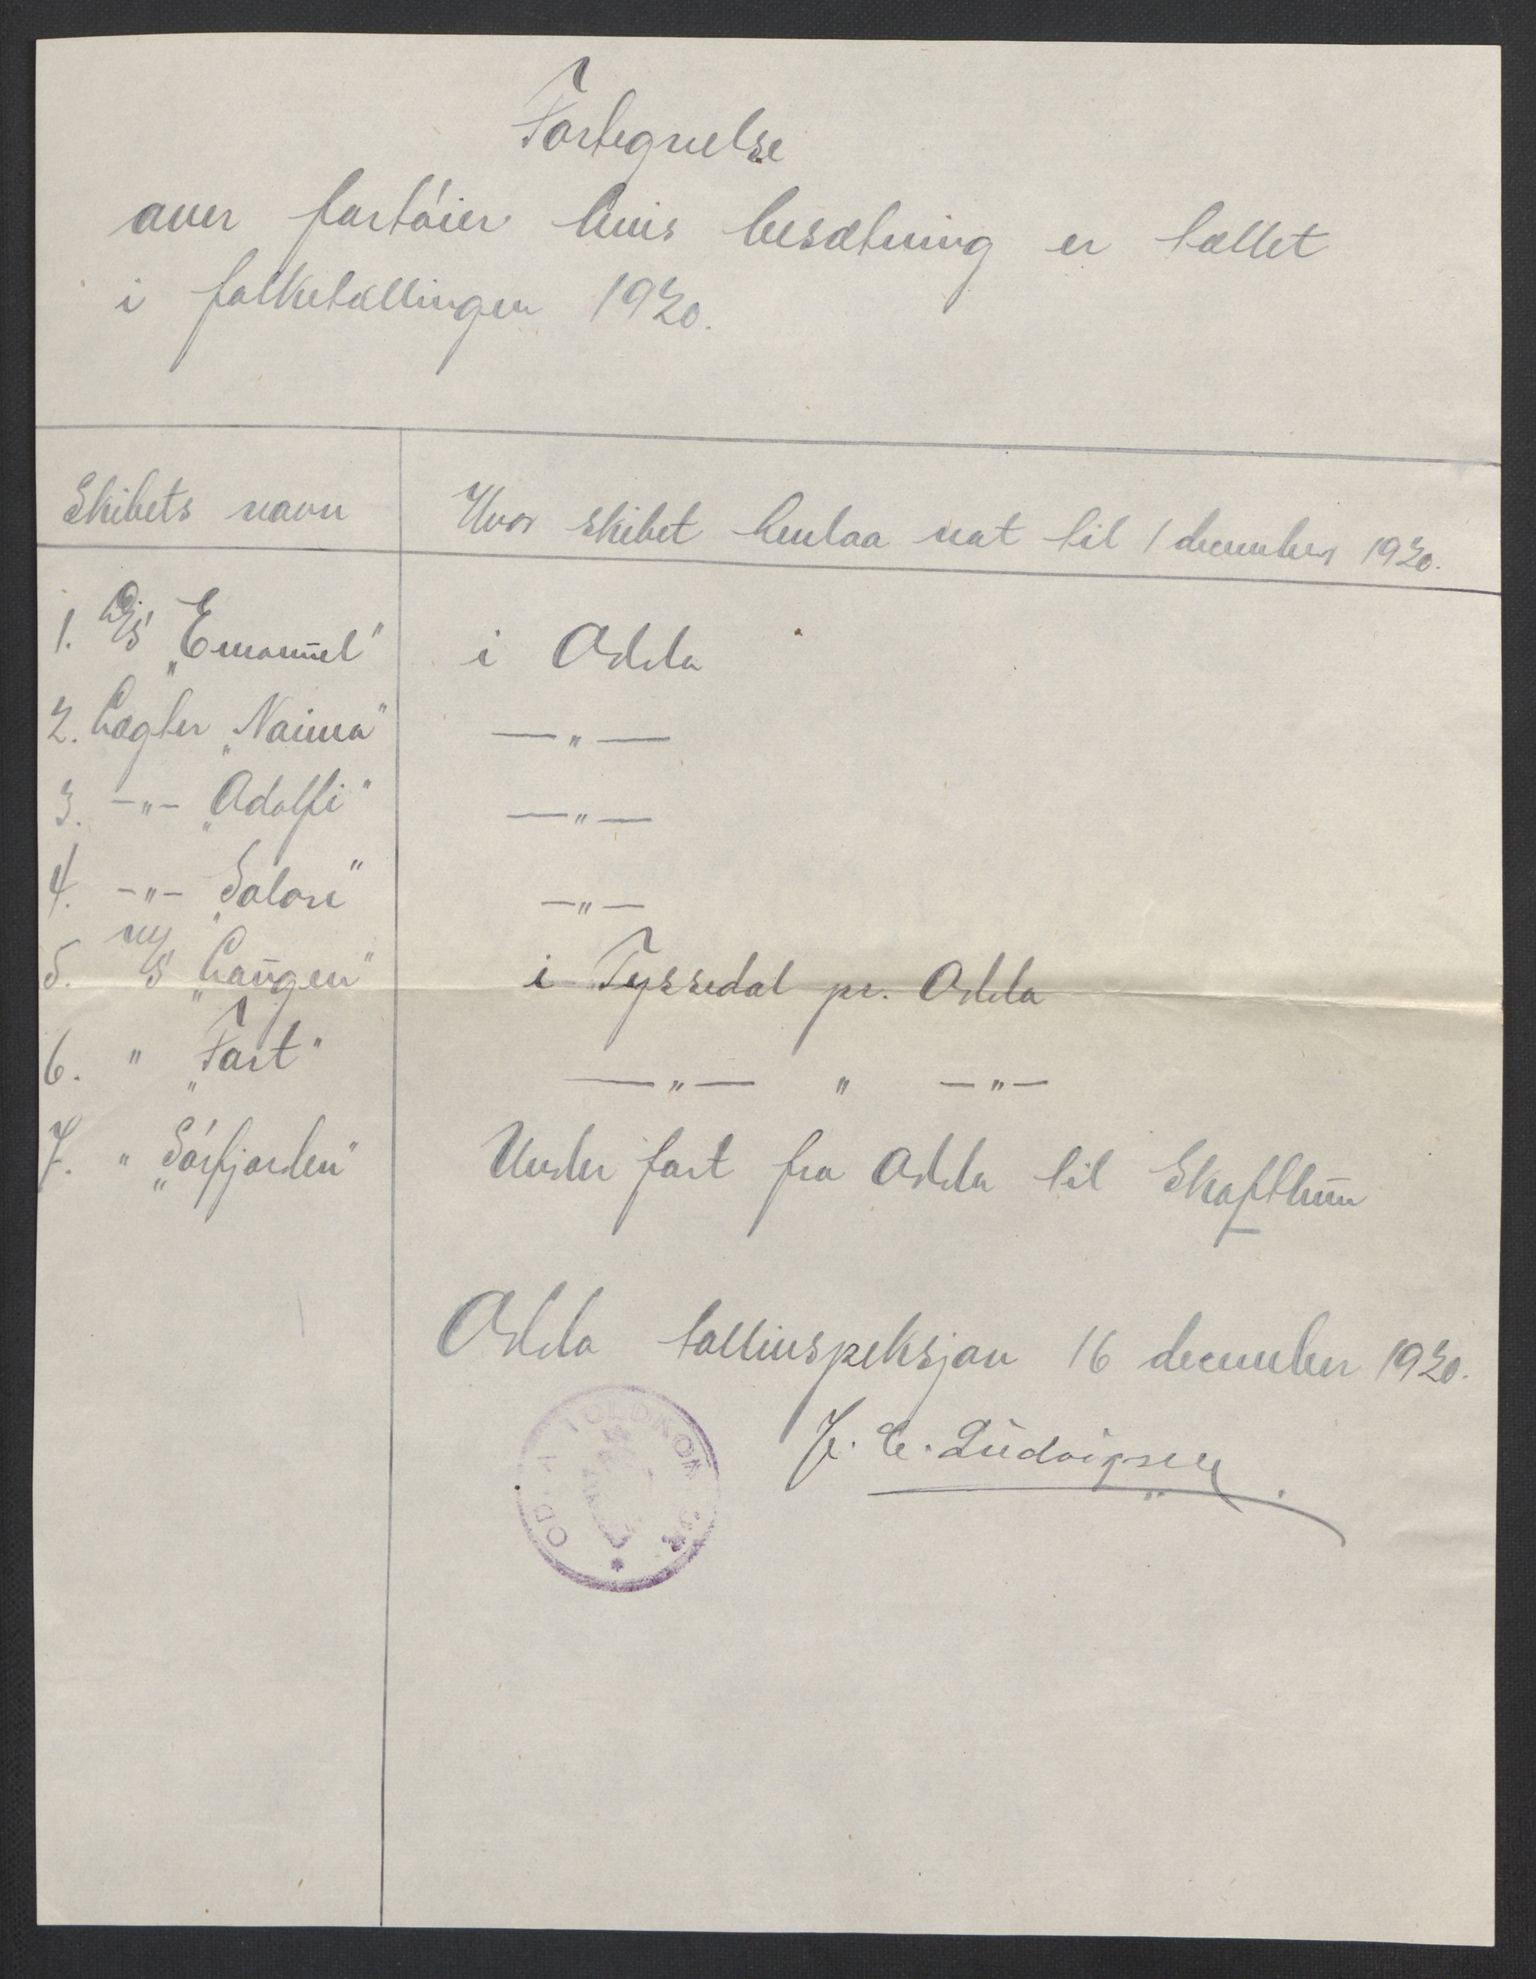 Fortegnelse
over fartöier hvis besætning er tællet
i folketællingen 1920.
Skibets navn
Hvor skibet henlaa nat til 1 december 1920.
1. D/S „Emanuel" i Odda
2. Lægter „Naima" —„—
3. —„— „Adolfi" —„—
4. —„— „Solori" —„—
5. M/S „Laugen" i Tyssedal pr. Odda
6. " „Fart" —„— " —„—
7. " „Sörfjorden" Under fart fra Odda til Skaftnun
Odda tollinspeksjon 16 december 1920.
H. C. Ludvigsen
ODDA TOLDKON